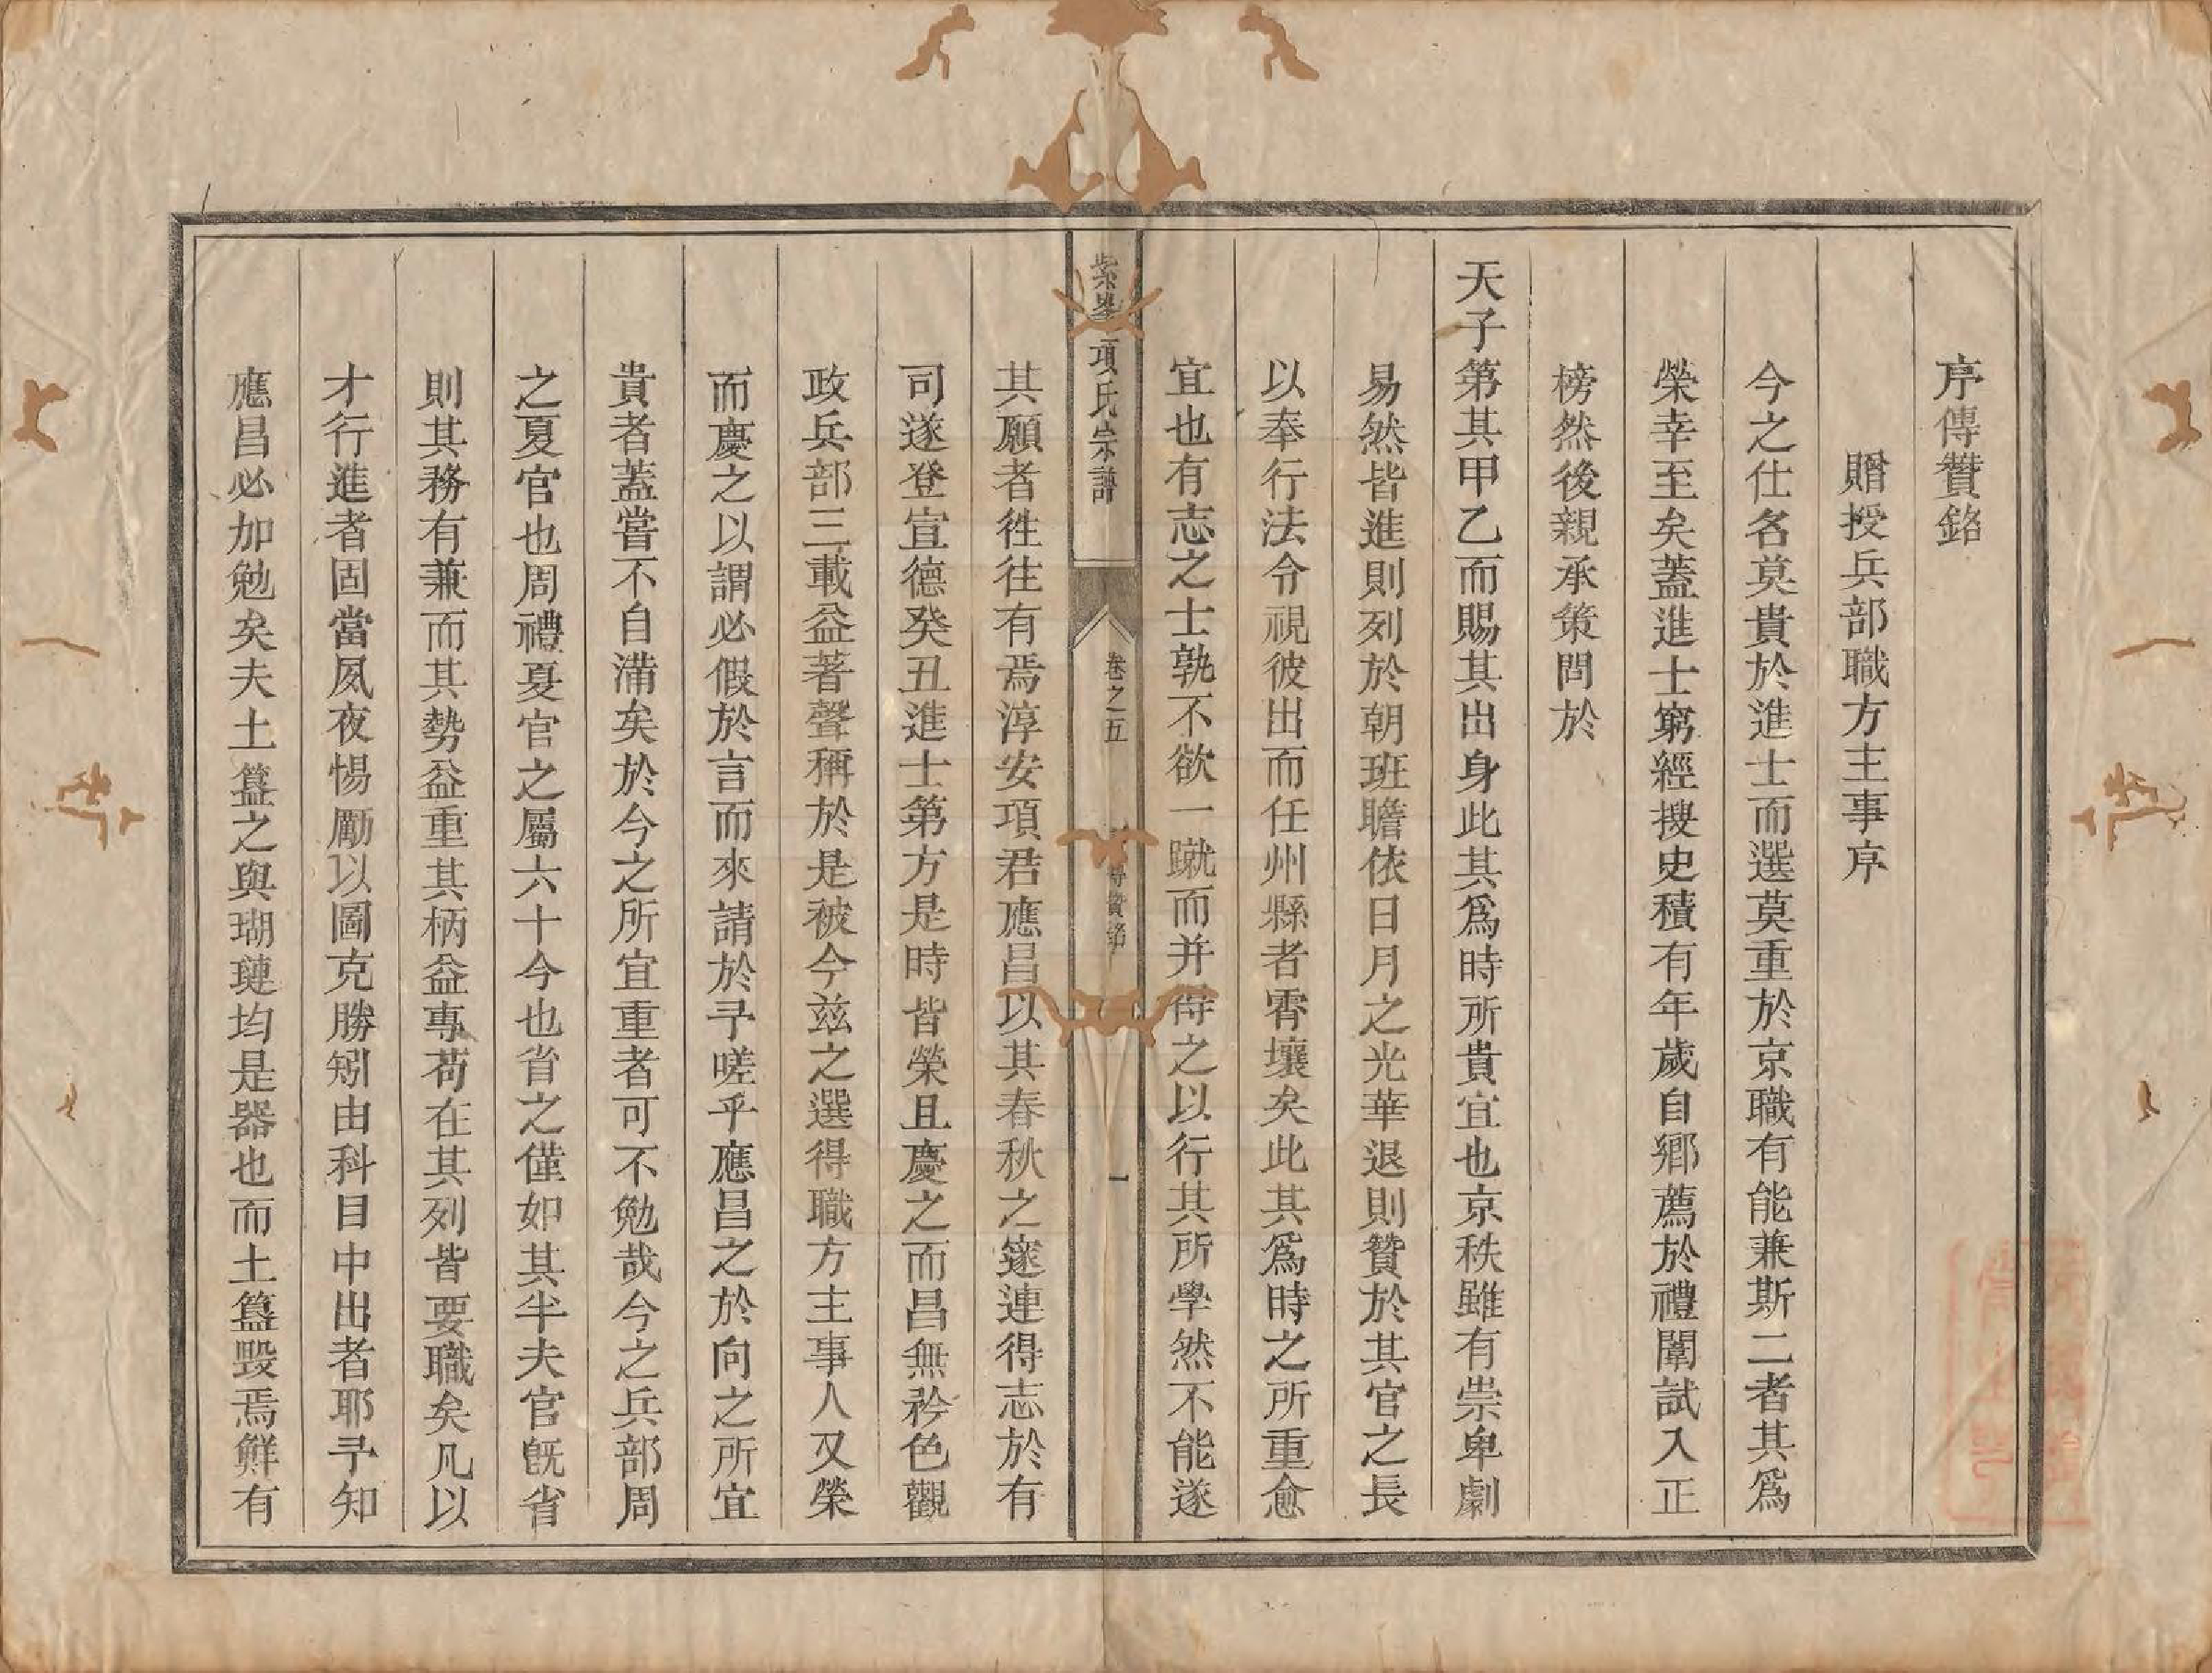 序傳贊銘
贈授兵部職方主事序
今之仕名莫貴於進士而選莫重於京職有能兼斯二者其爲
榮幸至矣蓋進士窮經搜史積有年歲自鄉薦於禮闈試入正
榜然後親承策問於
天子第其甲乙而賜其出身此其爲時所貴宜也京秩雖有崇卑劇
易然皆進則列於朝班瞻依日月之光華退則贊於其官之長
以奉行法令視彼出而任州縣者霄壤矣此其爲時之所重愈
宜也有志之士孰不欲一蹴而并得之以行其所學然不能遂
紫峯項氏宗譜
卷之五
傳贊銘
一
其願者徃往有焉淳安項君應昌以其春秋之邃連得志於有
司遂登宣德癸丑進士第方是時皆榮且慶之而昌無矜色觀
政兵部三載益著聲稱於是被今兹之選得職方主事人又榮
而慶之以謂必假於言而來請於予嗟乎應昌之於向之所宜
貴者蓋嘗不自滿矣於今之所宜重者可不勉哉今之兵部周
之夏官也周禮夏官之屬六十今也省之僅如其半夫官旣省
則其務有兼而其勢益重其柄益專苟在其列皆要職矣凡以
才行進者固當夙夜惕勵以圖克勝矧由科目中出者耶予知
應昌必加勉矣夫土簋之與瑚璉均是器也而土簋毀焉鮮有